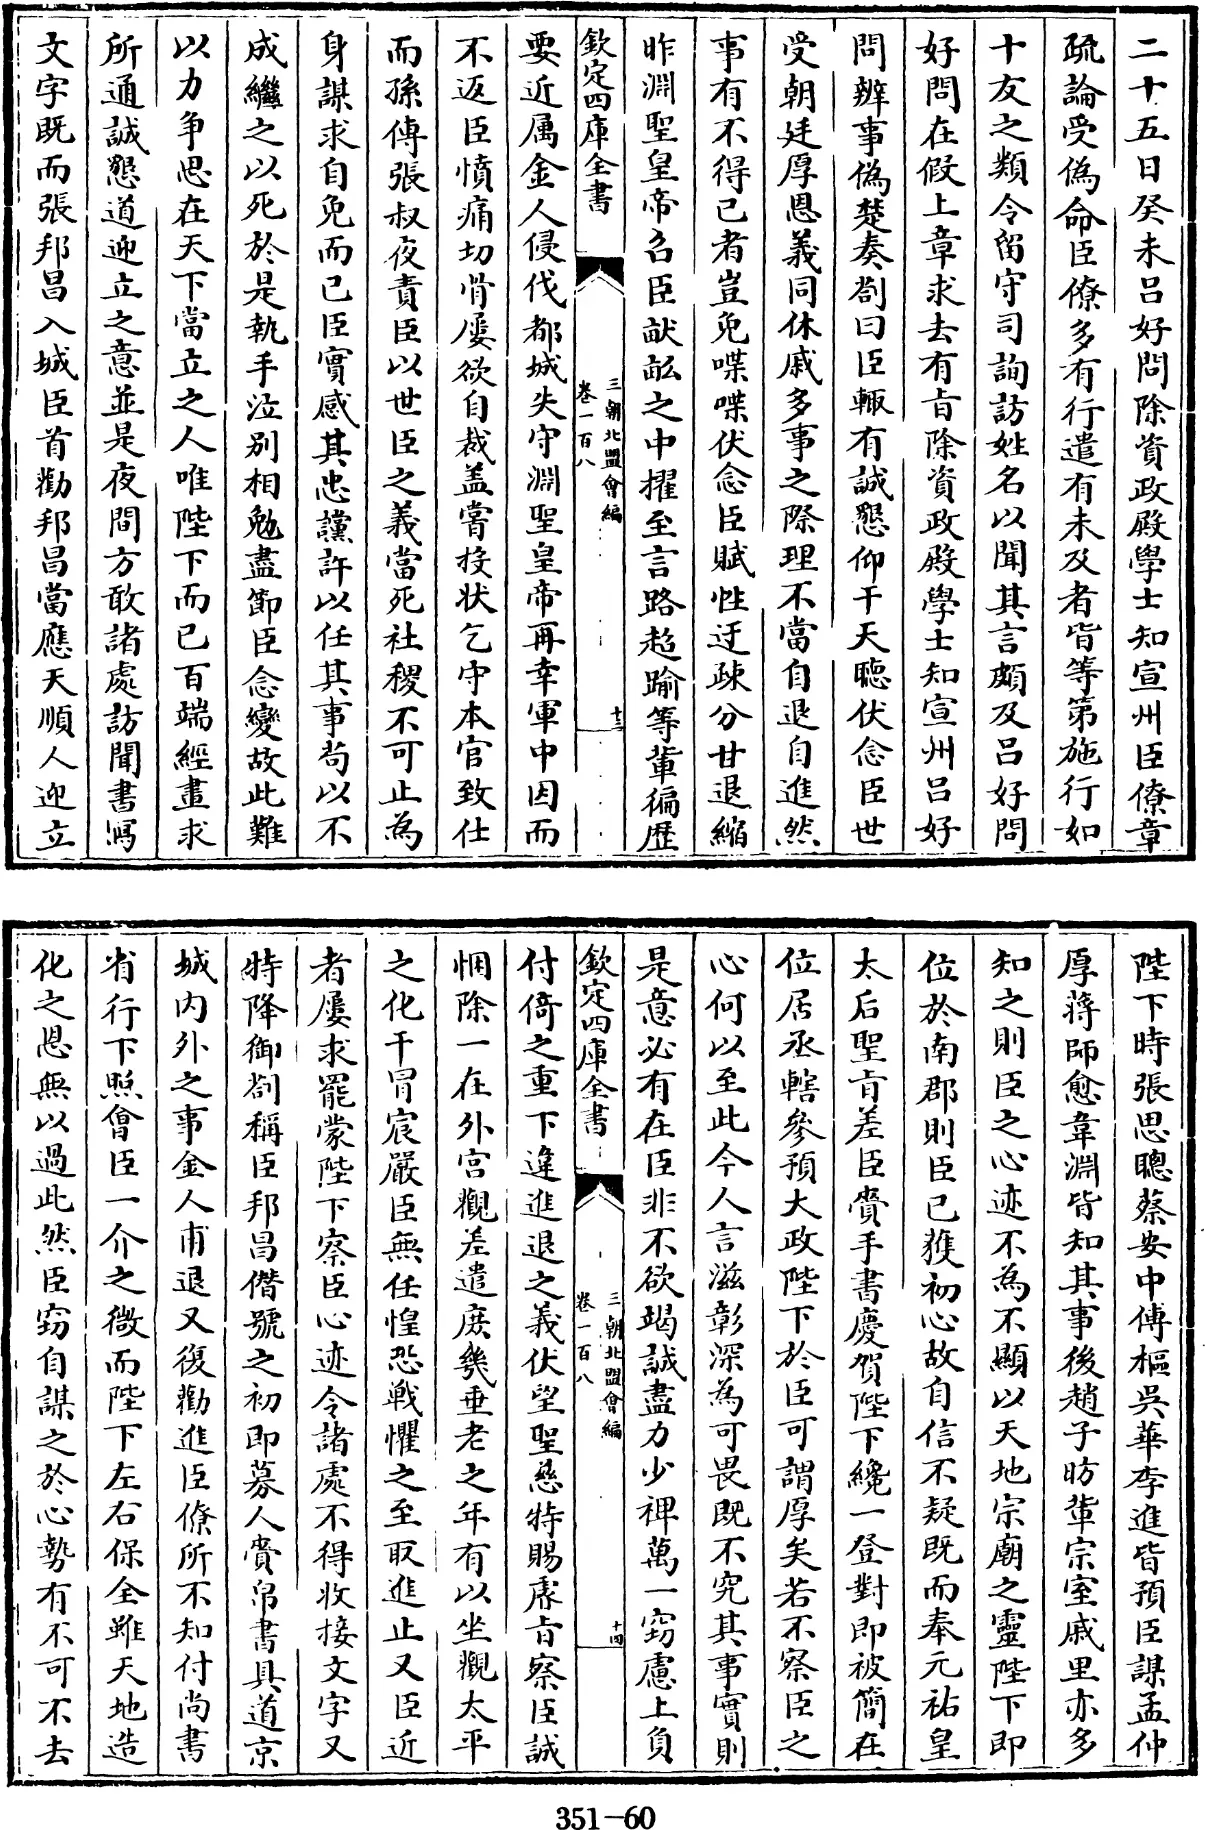 二十五日癸未呂好問除資政殿學士知宣州臣僚章
疏論受偽命臣僚多有行遣有未及者皆等第施行如
十友之類令留守司詢訪姓名以聞其言頗及呂好問
好問在假上章求去有㫖除資政殿學士知宣州呂好
問辨事偽楚奏劄曰臣輙有誠懇仰干天聽伏念臣世
受朝廷厚恩義同休戚多事之際理不當自退自進然
事有不得已者豈免喋喋伏念臣賦性迂疎分甘退縮
昨淵聖皇帝召臣畎畝之中擢至言路超踰等輩徧歴
欽定四庫全書
三朝北盟會編
卷一百八
十三
要近属金人侵伐都城失守淵聖皇帝再幸軍中因而
不返臣憤痛切骨屢欲自裁盖嘗投状乞守本官致仕
而孫傅張叔夜責臣以世臣之義當死社稷不可止為
身謀求自免而已臣實感其忠讜許以任其事茍以不
成繼之以死於是執手泣别相勉盡節臣念變故此難
以力争思在天下當立之人唯陛下而已百端經畫求
所通誠懇道迎立之意並是夜間方敢諸處訪聞書寫
文字既而張邦昌入城臣首勸邦昌當應天順人迎立
陛下時張思聰蔡安中傅樞吳革李進皆預臣謀孟仲
厚蔣師愈韋淵皆知其事後趙子昉輩宗室戚里亦多
知之則臣之心迹不為不顯以天地宗廟之靈陛下即
位於南郡則臣已獲初心故自信不疑既而奉元祐皇
太后聖㫖差臣賫手書慶賀陛下纔一登對即被簡在
位居丞轄參預大政陛下於臣可謂厚矣若不察臣之
心何以至此今人言滋彰深為可畏既不究其事實則
是意必有在臣非不欲竭誠盡力少裨萬一竊慮上負
欽定四庫全書
三朝北盟會編
卷一百八
十四
付倚之重下違進退之義伏望聖慈特賜睿㫖察臣誠
悃除一在外宫觀差遣庶幾垂老之年有以坐觀太平
之化干冒宸嚴臣無任惶恐戰懼之至取進止又臣近
者屢求罷蒙陛下察臣心迹令諸處不得收接文字又
特降御劄稱臣邦昌僭號之初即募人賫帛書具道京
城内外之事金人甫退又復勸進臣僚所不知付尚書
省行下照會臣一介之微而陛下左右保全雖天地造
化之恩無以過此然臣竊自謀之於心勢有不可不去
351-60